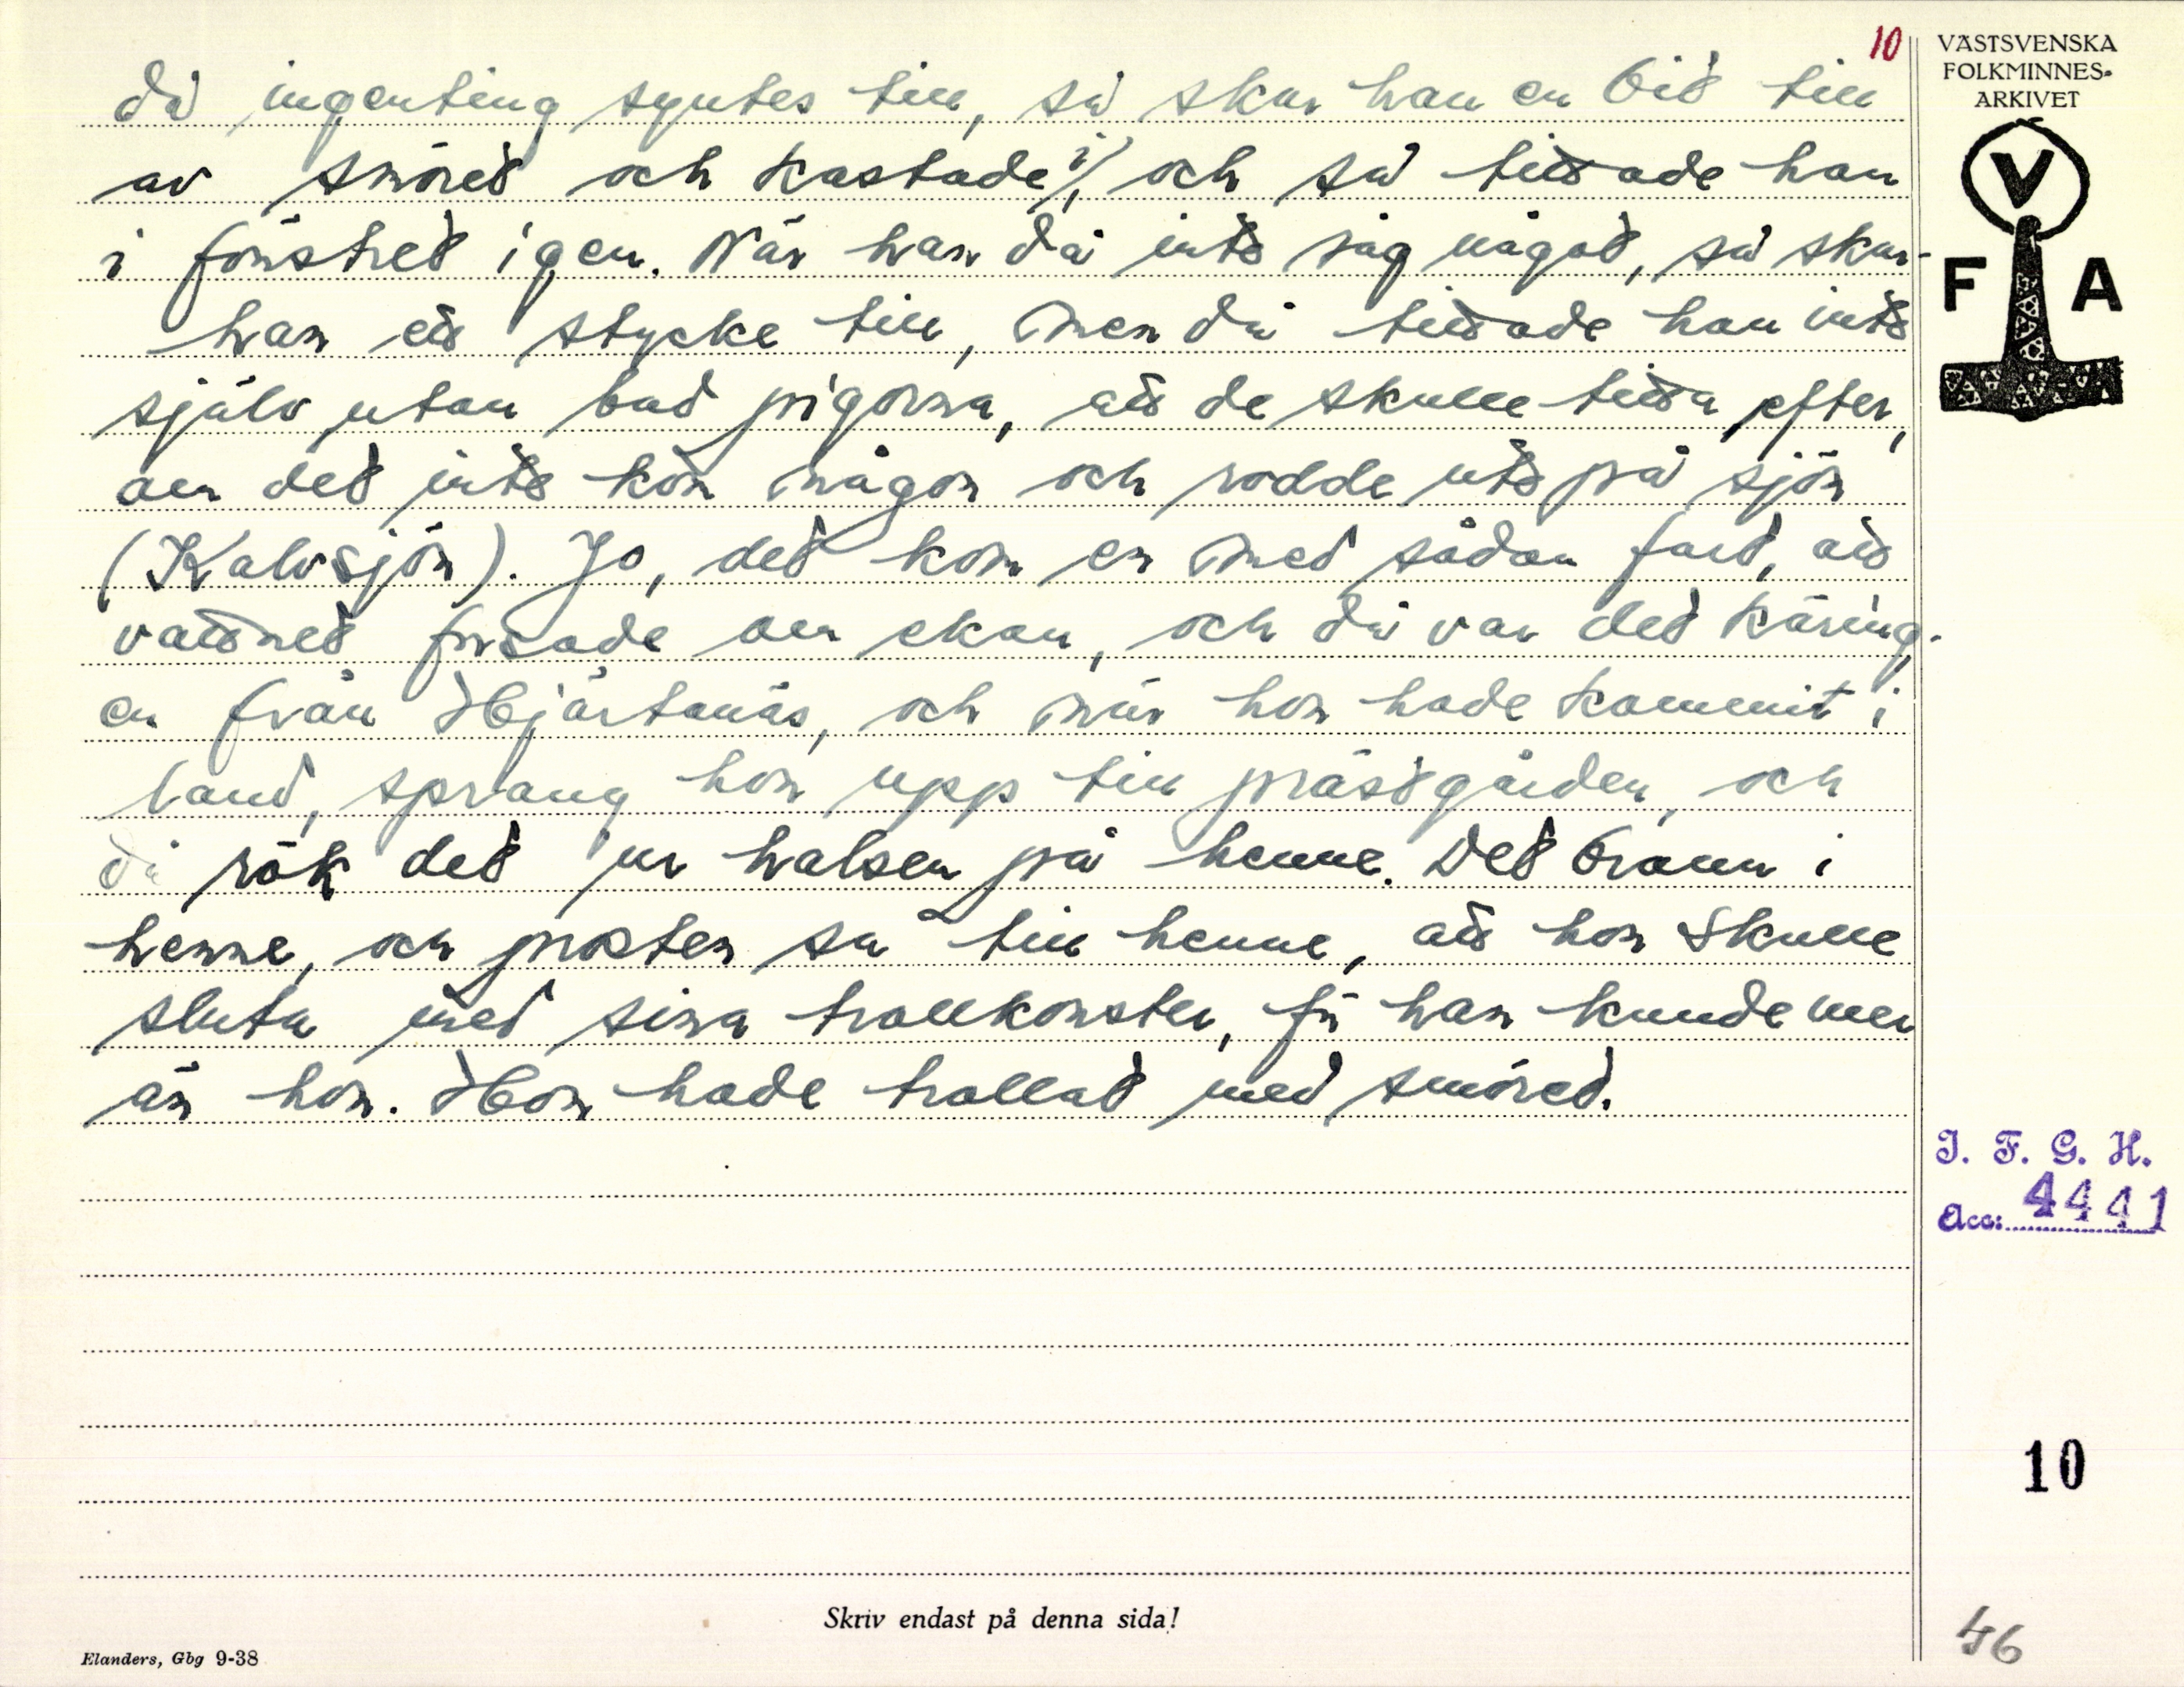 10
VÄSTSVENSKA
FOLKMINNES-
ARKIVET
V
F A
då ingenting syntes till, så skar han en bit till
av smöret och kastade i, och så tittade han
i fönstret igen. När han då inte såg något, så skar
han ett stycke till, men då tittade han inte
själv utan bad pigorna, att de skulle titta efter,
om det inte kom någon och rodde ute på sjön
(Kalvsjön). Jo, det kom en med sådan fart, att
vattnet frusade om ekan, och då var det käring-
en från Hjärtanäs, och när hon hade kommit i
land, sprang hon upp till prästgården, och
då rök det ur halsen på henne. Det brann i
henne, och prosten sa till henne, att hon skulle
sluta med sina trollkonster, för han kunde mer
än hon. Hon hade trollat med smöret.
I. F. G. H.
Acc: 4441
10
Skriv endast på denna sida!
Elanders, Gbg 9-38
46